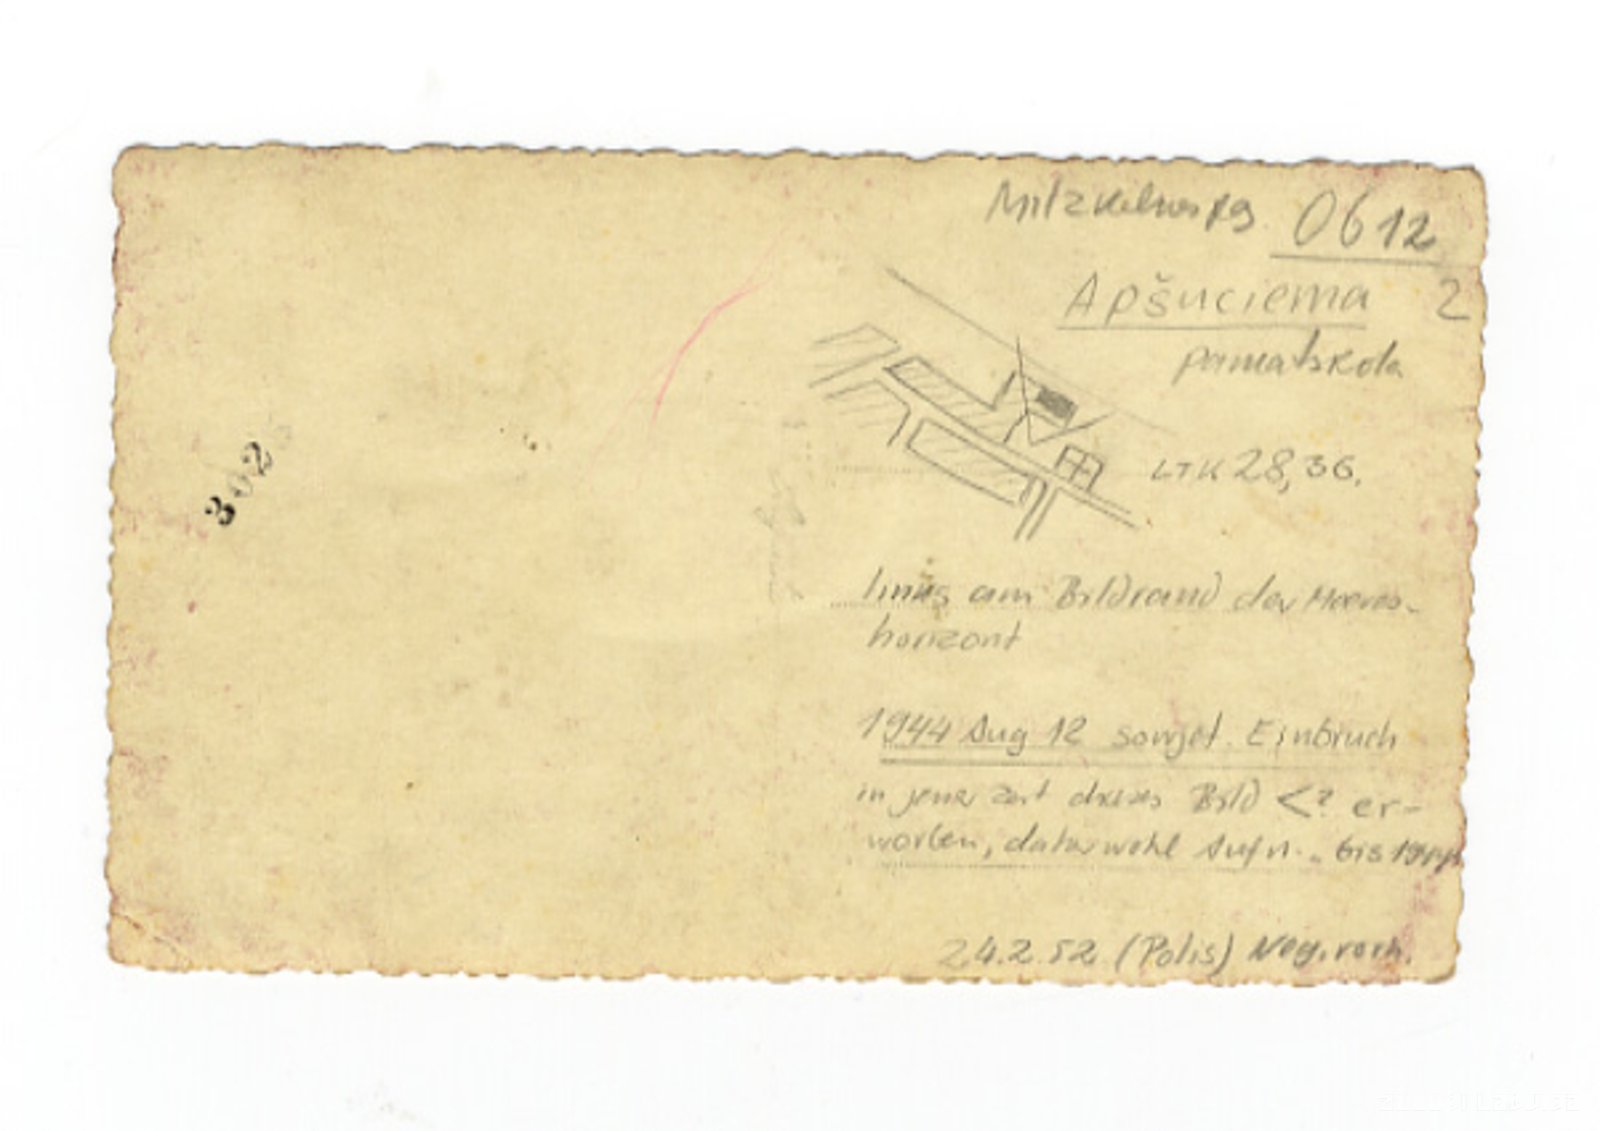 0612
Apšuciema 2
pamatskola
LTK 28,36.
3025
links am Bildrand der Meeres-
horizont
1944 Aug 12 sowjet. Einbruch
in jener Zeit dieses Bild <? er-
worben, daher wohl Aufn. bis 1944
24.2.52 (Polis) Neg. vorh.